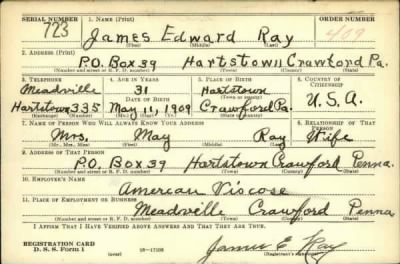 SERIAL NUMBER 1. NAME (Print) ORDER NUMBER
723 James Edward Ray 409
(First) (Middle) (Last)
2. ADDRESS (Print)
P.O. Box 39 Hartstown Crawford Pa.
(Number and street or R. F. D. number) (Town) (County) (State)
3. TELEPHONE 4. AGE IN YEARS 5. PLACE OF BIRTH 6. COUNTRY OF CITIZENSHIP
Meadville 31 Hartstown
DATE OF BIRTH (Town or county) U.S.A.
Hartstown 335 May 11, 1909 Crawford Pa.
(Exchange) (Number) (Mo.) (Day) (Yr.) (State or country)
7. NAME OF PERSON WHO WILL ALWAYS KNOW YOUR ADDRESS 8. RELATIONSHIP OF THAT PERSON
Mrs. May Ray Wife
(Mr., Mrs., Miss) (First) (Middle) (Last)
9. ADDRESS OF THAT PERSON
P.O. Box 39 Hartstown Crawford Penna.
(Number and street or R. F. D. number) (Town) (County) (State)
10. EMPLOYER'S NAME
American Viscose
11. PLACE OF EMPLOYMENT OR BUSINESS
Meadville Crawford Penna
(Number and street or R. F. D. number) (Town) (County) (State)
I AFFIRM THAT I HAVE VERIFIED ABOVE ANSWERS AND THAT THEY ARE TRUE.
REGISTRATION CARD
D. S. S. Form 1 (over) James E. Ray
(Registrant's signature)